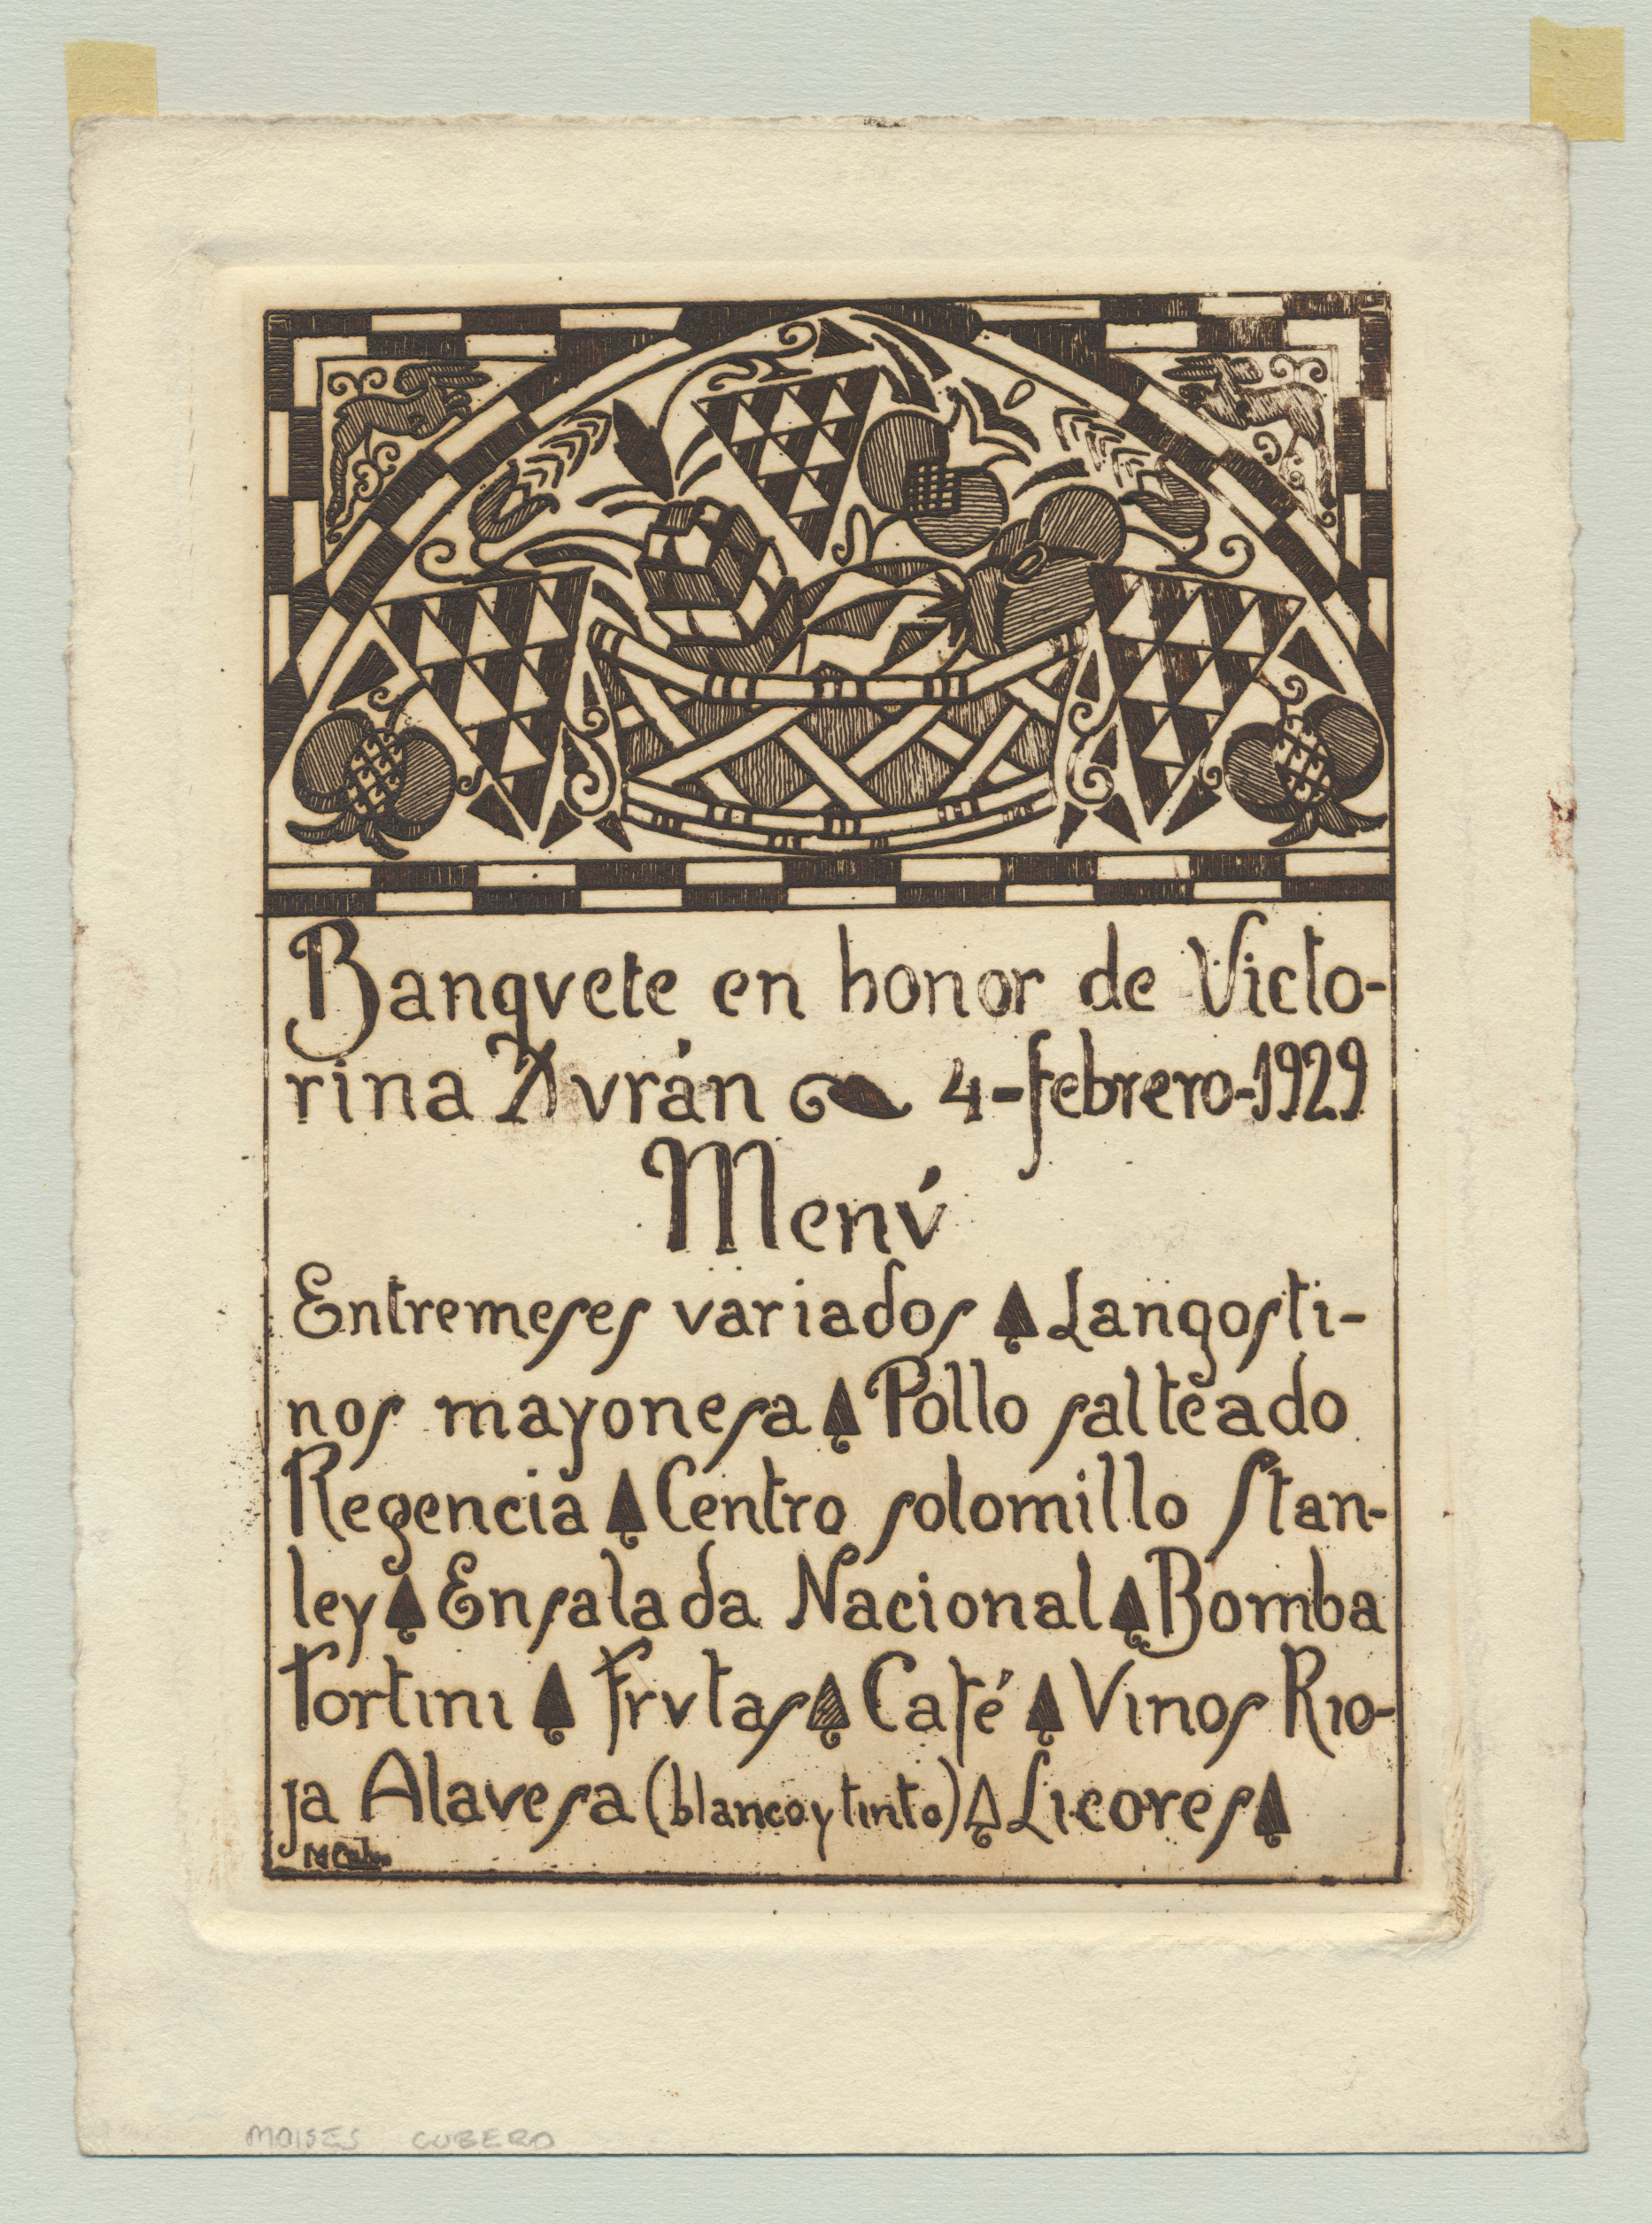 Banqvete en honor de Victo-
rina Dvrán 4-febrero-1929
Menv́
Entremeses variados Langosti-
nos mayonesa Pollo salteado
Regencia Centro solomillo Stan-
ley Ensalada Nacional Bomba
Tortini Frvtas Café Vinos Rio-
ja Alavesa (blanco y tinto) Licores
MOISES CUBERO